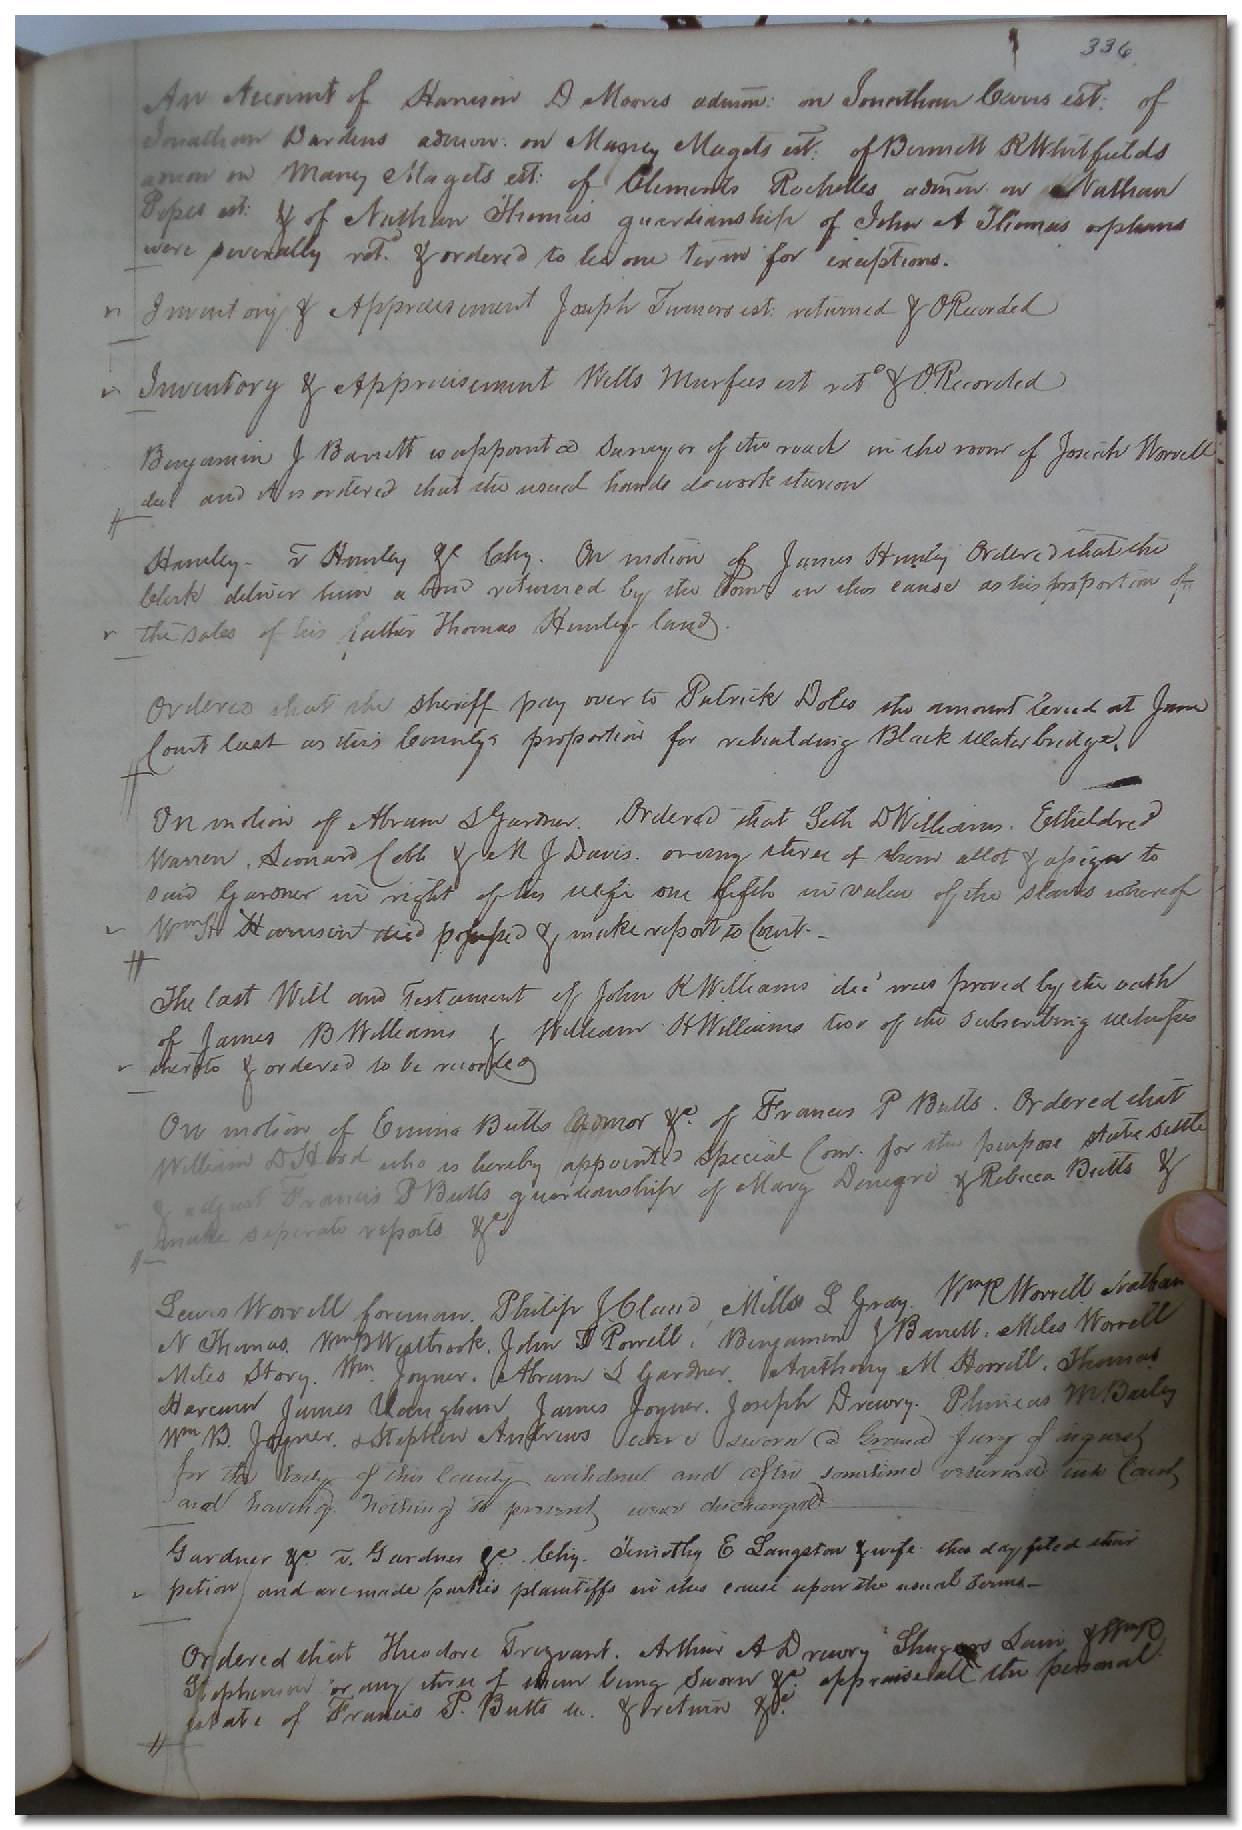 336
An Account of Harrison D Moores admon: on Jonathan Carrs est: of
Jonathan Dardens admon: on Maney Magets est: of Bennett K Whitfields
admon on Maney Magets est: of Clements Rochelles admon on Nathan
Popes est: & of Nathan Thomas guardianship of John A Thomas orphans
were severally ret. & ordered to lie one term for exceptions.
Inventory & Appraisement Joseph Turners est: returned & O Recorded
Inventory & Appraisement Wells Murfees est retd & O. Recorded
Benjamin J Barrett is appointed Surveyor of the road in the room of Josiah Worrell
dec and it is ordered that the usual hands do work thereon
Humley v Humley &c Chy. On motion of James Humley Ordered that the
Clerk deliver him a bond returned by the Comr in this cause as his proportion of
the sales of his father Thomas Humley land.
Ordered that the sheriff pay over to Patrick Doles the amount levied at June
Court last as this Countys proportion for rebuilding Black Water bridge.
On motion of Abram S Gardner. Ordered that Seth D Williams. Etheldred
Warren, Leonard Cobb & M J Davis. or any three of them allot & assign to
said Gardner in right of his wife one fifth in value of the slaves whereof
Wm H Harrison died possessed & make report to Court.
The last Will and Testament of John K Williams decd was proved by the oath
of James B Williams & William H Williams two of the subscribing witnesses
thereto & ordered to be recorded
On motion of Emma Butts admor &c. of Francis P Butts. Ordered that
William D Hood who is hereby appointed special Comr. for the purpose state settle
& adjust Francis P Butts guardianship of Mary Denegre & Rebecca Butts &
make seperate reports &c
Lewis Worrell foreman. Philip J Claud, Mills L Gray. Wm R Worrell Nathan
N Thomas. Wm B Westbrook. John D Porrell, Benjamin J Barrett. Miles Worrell
Miles Story. Wm. Joyner. Abram S Gardner. Anthony M Horrell. Thomas
James Vaughan James Joyner. Joseph Drewry. Phineas M Bailey
Wm B. Joyner. & Stephen Andrews were sworn a Grand Jury of inquest
for the body of this County withdrew and after sometime returned into Court
and having nothing to present were discharged
Gardner &c v. Gardner &c Chy. Timothy E Langston & wife this day filed their
petion and are made parties plaintiffs in this cause upon the usual terms
Ordered that Theodore Trezvant. Arthur A Drewry & Wm R
Stephenson or any three of them being sworn &c. appraise all the personal
estate of Francis P. Butts dec. & return &c.